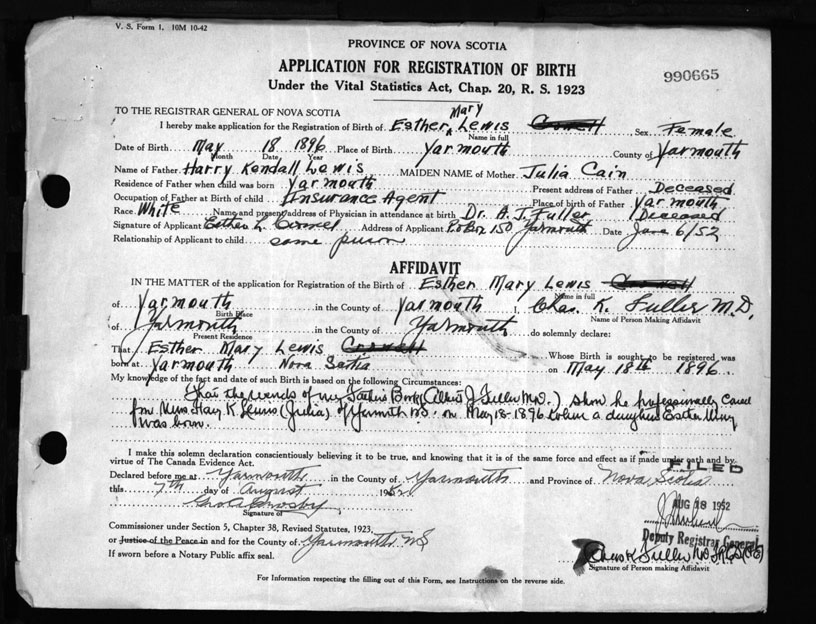 V. S. Form 1. 10M 10-42
PROVINCE OF NOVA SCOTIA
APPLICATION FOR REGISTRATION OF BIRTH
990665
Under the Vital Statistics Act, Chap. 20, R. S. 1923
TO THE REGISTRAR GENERAL OF NOVA SCOTIA
I hereby make application for the Registration of Birth of Esther Mary Lewis Sex Female
Name in full
Date of Birth May 18 1896 Place of Birth Yarmouth County of Yarmouth
Month Date Year
Name of Father Harry Kendall Lewis MAIDEN NAME of Mother Julia Cain
Residence of Father when child was born Yarmouth Present address of Father Deceased
Occupation of Father at Birth of child Insurance Agent Place of birth of Father Yarmouth
Race White Name and present address of Physician in attendance at birth Dr. A. J. Fuller Deceased
Signature of Applicant Esther L. Address of Applicant P.O. Box 150 Yarmouth Date 6/52
Relationship of Applicant to child same person
AFFIDAVIT
IN THE MATTER of the application for Registration of the Birth of Esther Mary Lewis
Name in full
of Yarmouth in the County of Yarmouth I, Chas. K. Fuller M.D.
Birth Place Name of Person Making Affidavit
of Yarmouth in the County of Yarmouth do solemnly declare:
Present Residence
That Esther Mary Lewis Whose Birth is sought to be registered was
born at Yarmouth Nova Scotia on May 18th 1896
My knowledge of the fact and date of such Birth is based on the following Circumstances:
That the records of my Father's Books (Albert J. Fuller M.D.) show he professionally cared
for Mrs. Harry K. Lewis (Julia) of Yarmouth N.S. on May 18-1896 when a daughter Esther Mary
was born.
I make this solemn declaration conscientiously believing it to be true, and knowing that it is of the same force and effect as if made under oath and by
virtue of The Canada Evidence Act.
FILED
Declared before me at Yarmouth in the County of Yarmouth and Province of Nova Scotia
this 7th day of August 1952
AUG 18 1952
Geo. A. Crosby
Signature of
Deputy Registrar General
Commissioner under Section 5, Chapter 38, Revised Statutes, 1923,
or Justice of the Peace in and for the County of Yarmouth NS
If sworn before a Notary Public affix seal.
Chas K Fuller M.D.
Signature of Person making Affidavit
For Information respecting the filling out of this Form, see Instructions on the reverse side.